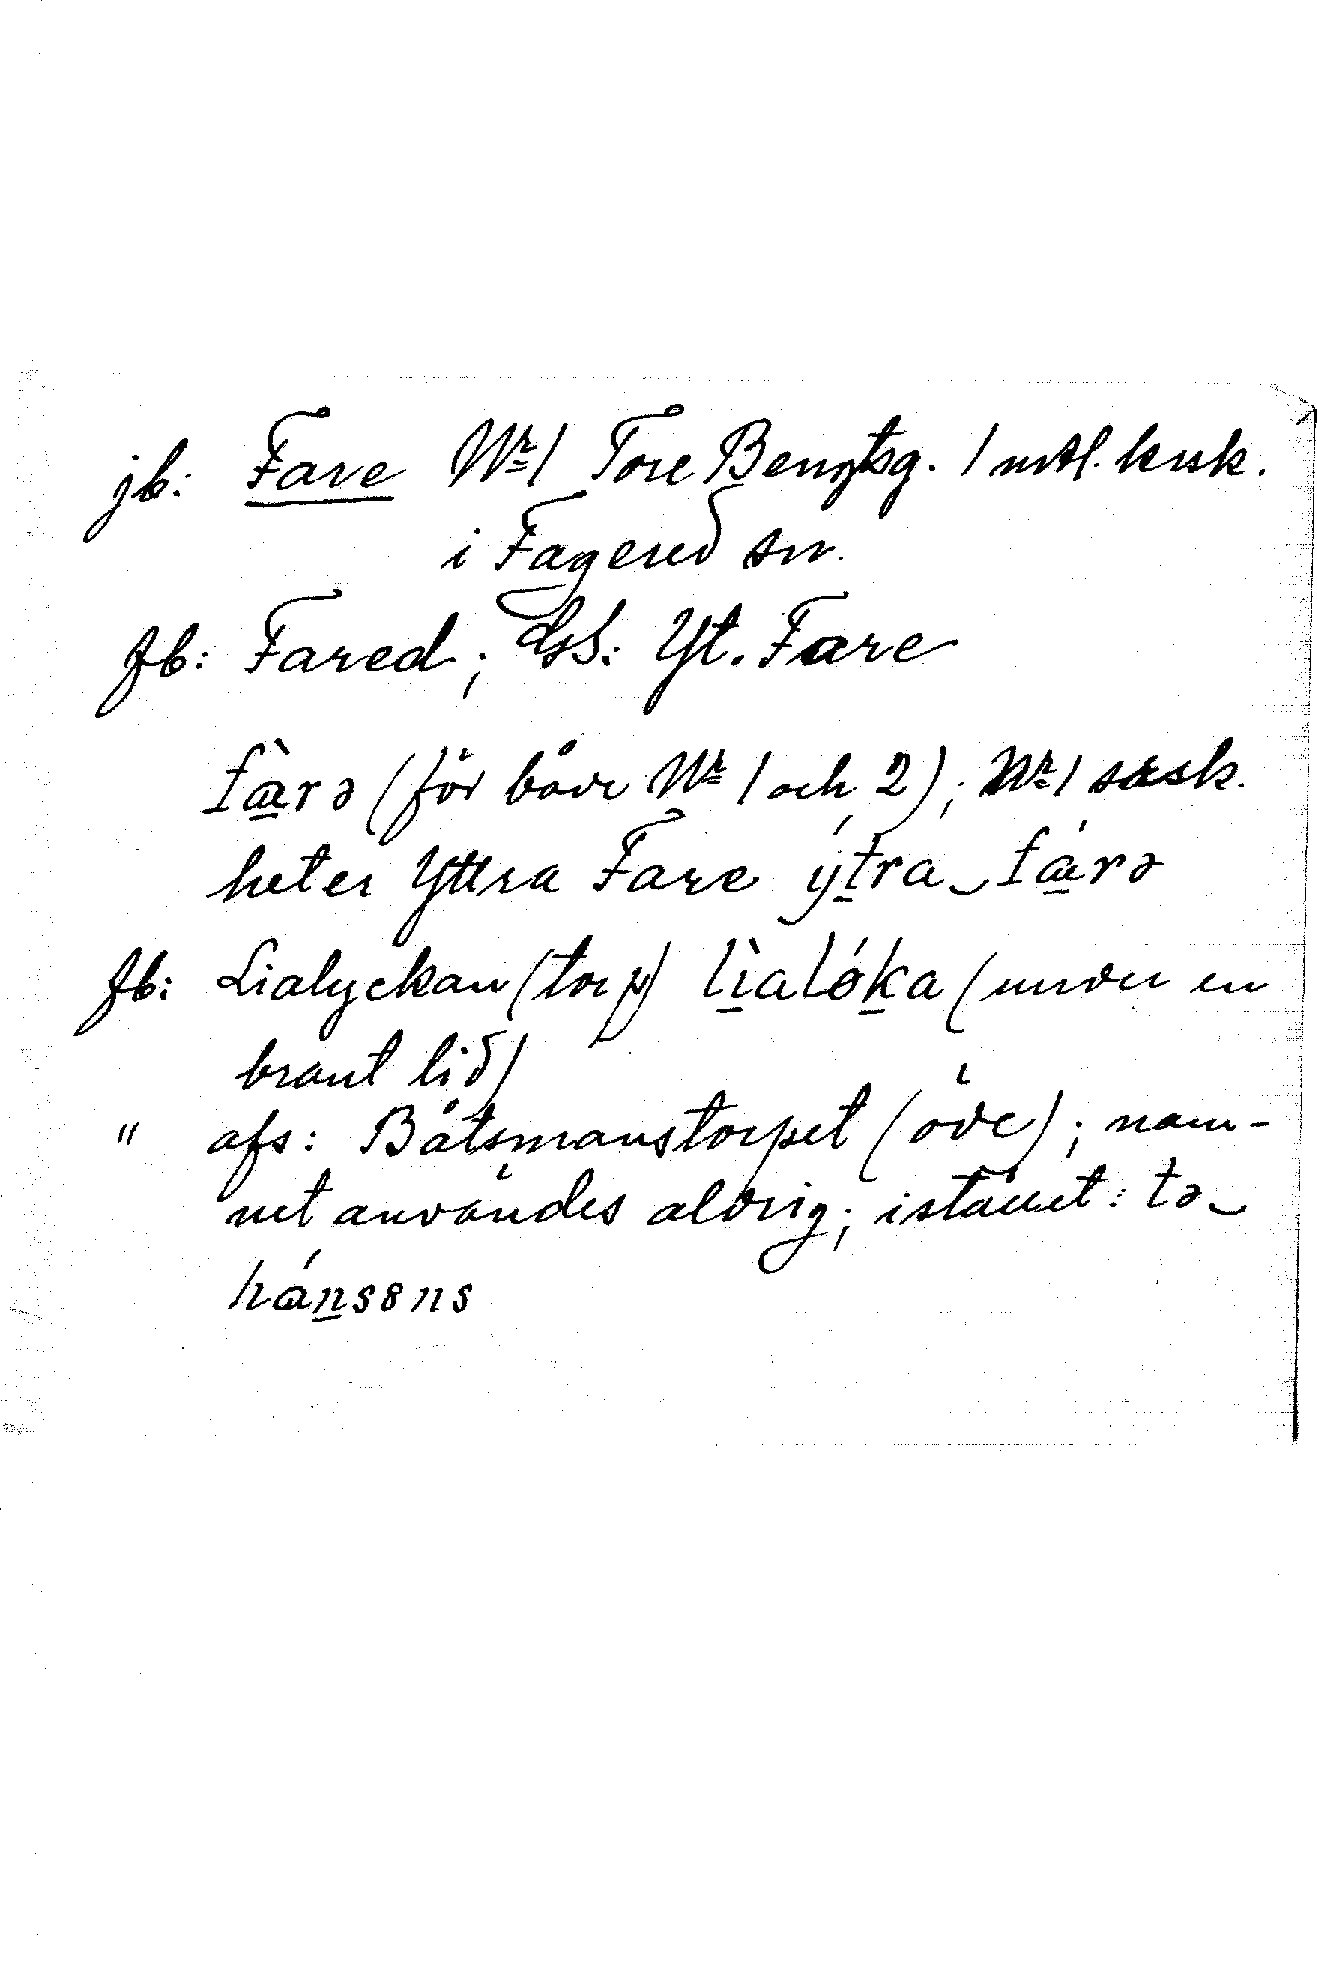 jb: Fare Nr 1 Tore Bengtsg. 1 mtl. krsk.
i Fagered sn.
fb: Fared; dss: Yt. Fare
fà̱rə (för både Nr 1 och 2); Nr 1 särsk.
heter Yttra Fare ýṯra‿fá̱rə
fb: Lialyckan (torp) lì̱aló̱ka (under en
brant lid)
" afs: Båtsmanstorpet (öde); nam-
net användes aldrig; istället: tə‿
háṉsəns